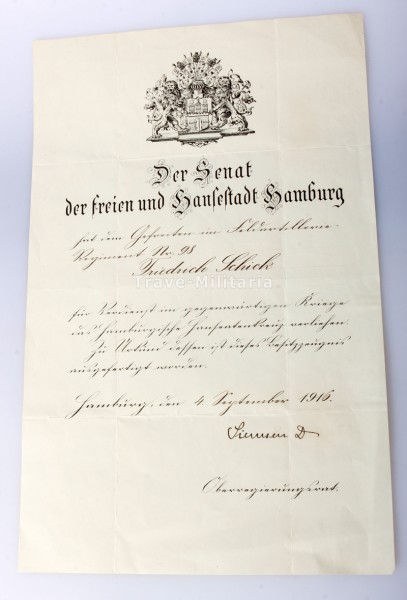 Der Senat
der freien und Hansestadt Hamburg
hat dem Gefreiten im Feldartillerie-
Regiment No. 98
Friedrich Schick
Trave-Militaria
für Verdienst im gegenwärtigen Kriege
das Hamburgische Hanseatenkreuz verliehen.
Zu Urkund dessen ist dieses Besitzzeugnis
ausgefertigt worden.
Hamburg, den 4. September 1916.
Siemsen D
Oberregierungsrat.